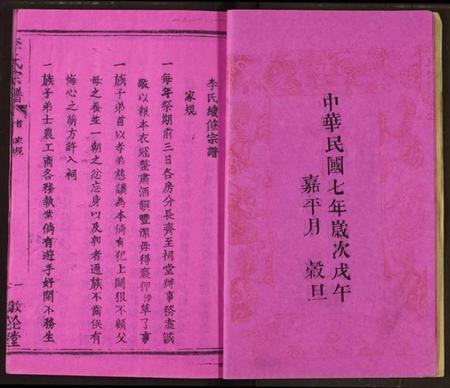 中華民國七年歲次戊午
嘉平月 穀旦
李氏續修宗譜
家規
一每年祭期前三日各房分長齊至祠堂辦事務盡誠
敬以報本衣冠整肅酒饌豐潔毋得褻狎草草了事
一族子弟首以孝弟慈讓為本倘有犯上鬬狠不顧父
母之養並一朝之忿忘身以及親者通族不齒俟有
悔心之萌方許入祠
一族子弟士農工商各務執業倘有遊手好閒不務生
李氏宗譜
首 家規
一
敦倫堂